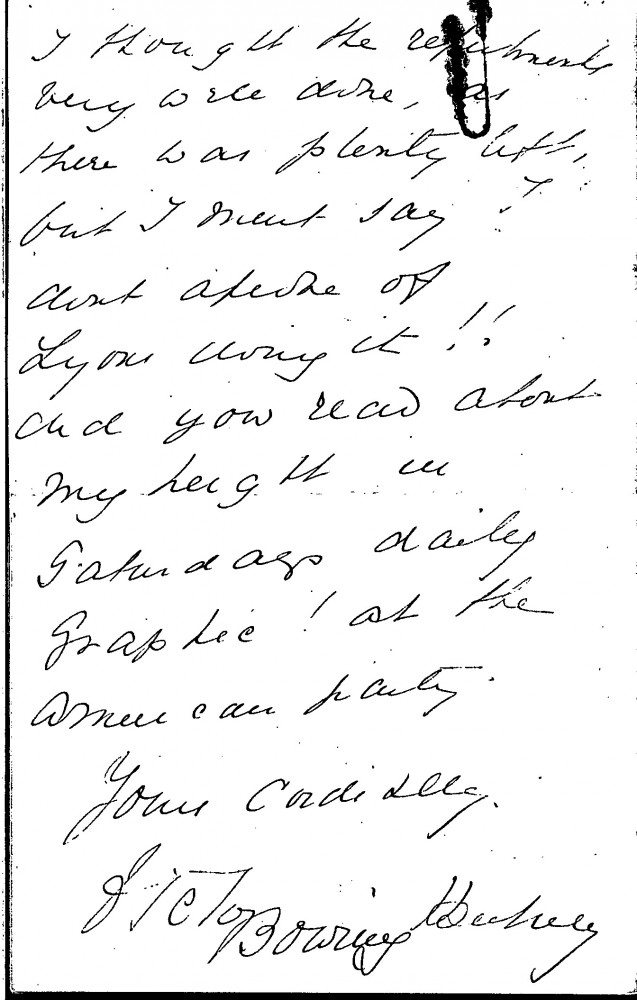 I thought the refreshments
very well done, as
there was plenty left,
but I must say I
dont aprove of
Lyons doing it!!
did you read about
my height in
Saturdays daily
Graphic! at the
American party.
Yours Cordially.
Victor Bowring